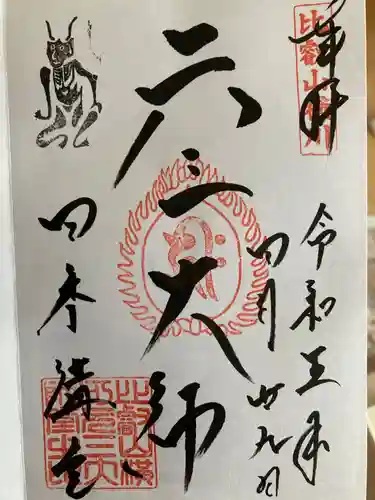 奉拝
比叡山横川
令和五年
四月廿九日
元三大師
四季講堂
比叡山横
川元三大